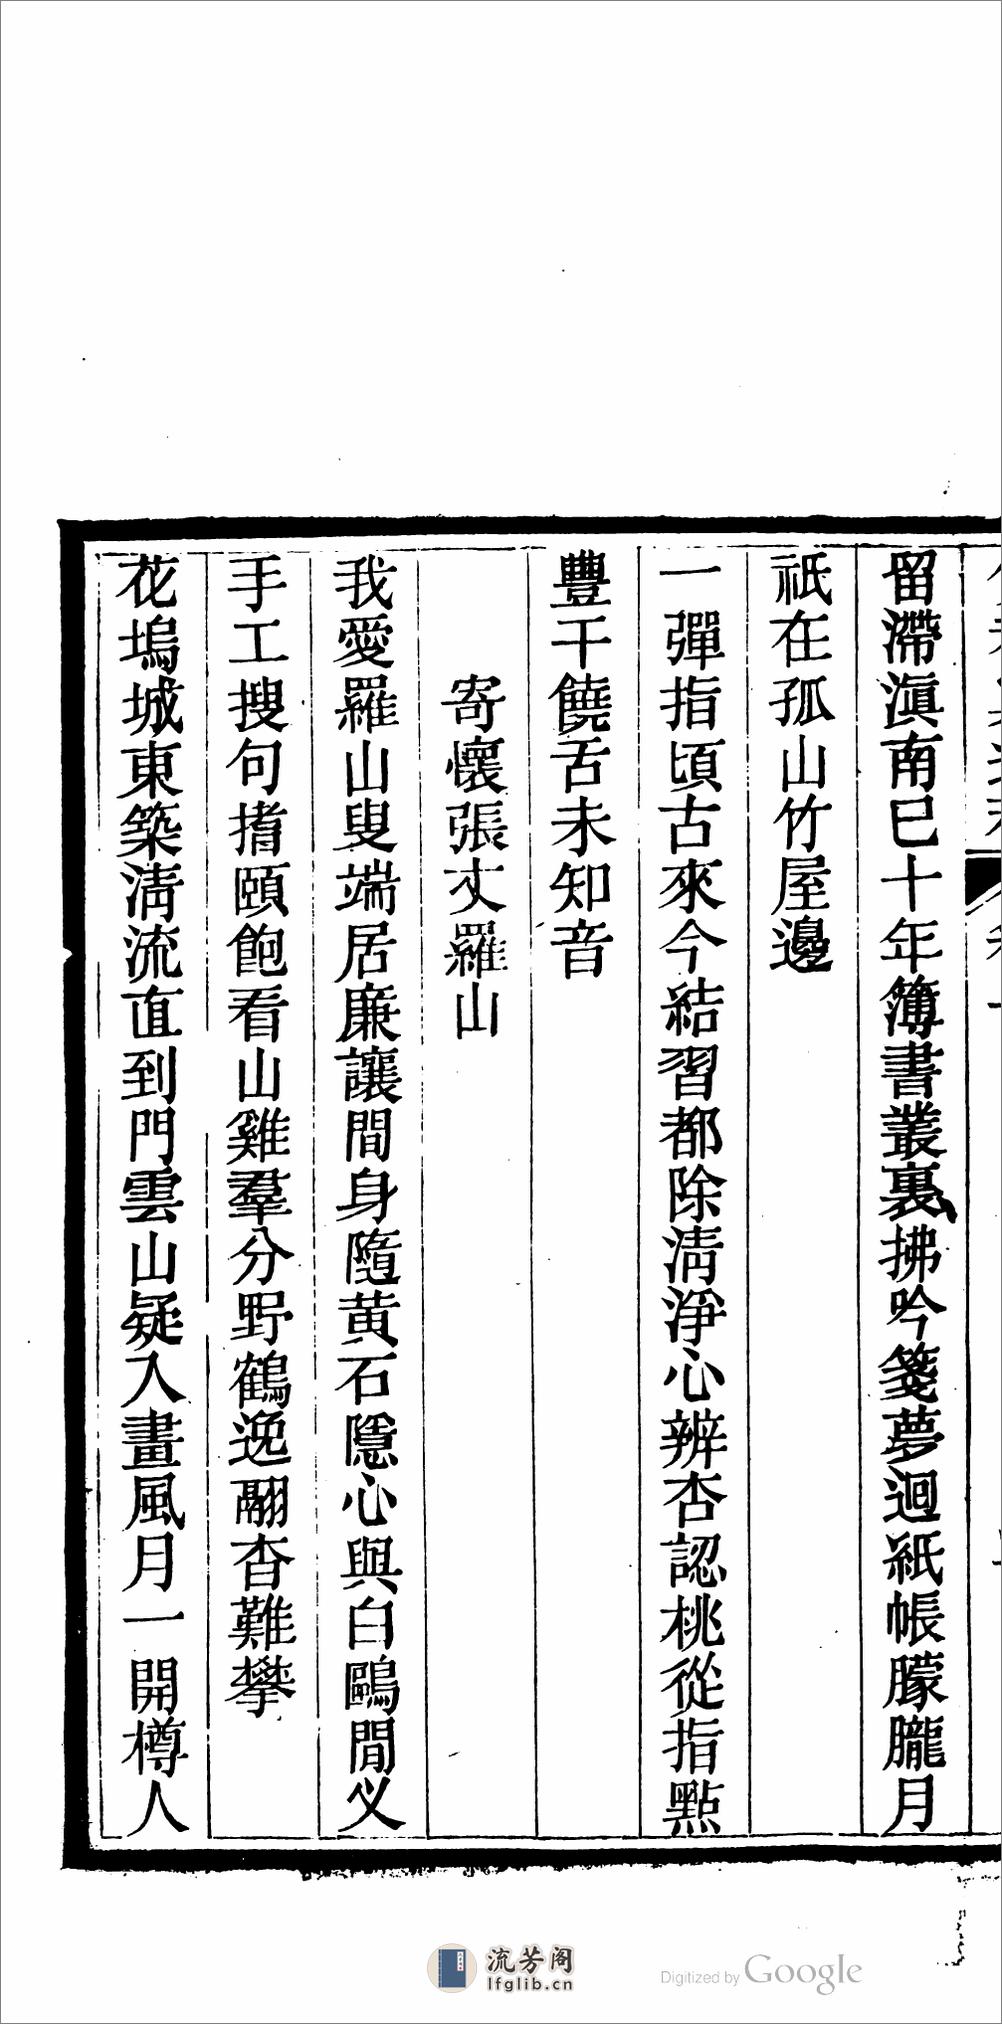 留滯滇南巳十年簿書叢裏拂吟箋夢迴紙帳朦朧月
祇在孤山竹屋邊
一彈指頃古來今結習都除淸淨心辨杏認桃從指點
豐干饒舌未知音
寄懷張丈羅山
我愛羅山叟端居廉讓間身隨黃石隱心與白鷗閒乂
手工搜句搘頤飽看山雞羣分野鶴逸翮杳難攀
花塢城東築淸流直到門雲山疑入畫風月一開樽人
流芳阁
lfglib.cn
Digitized by Google